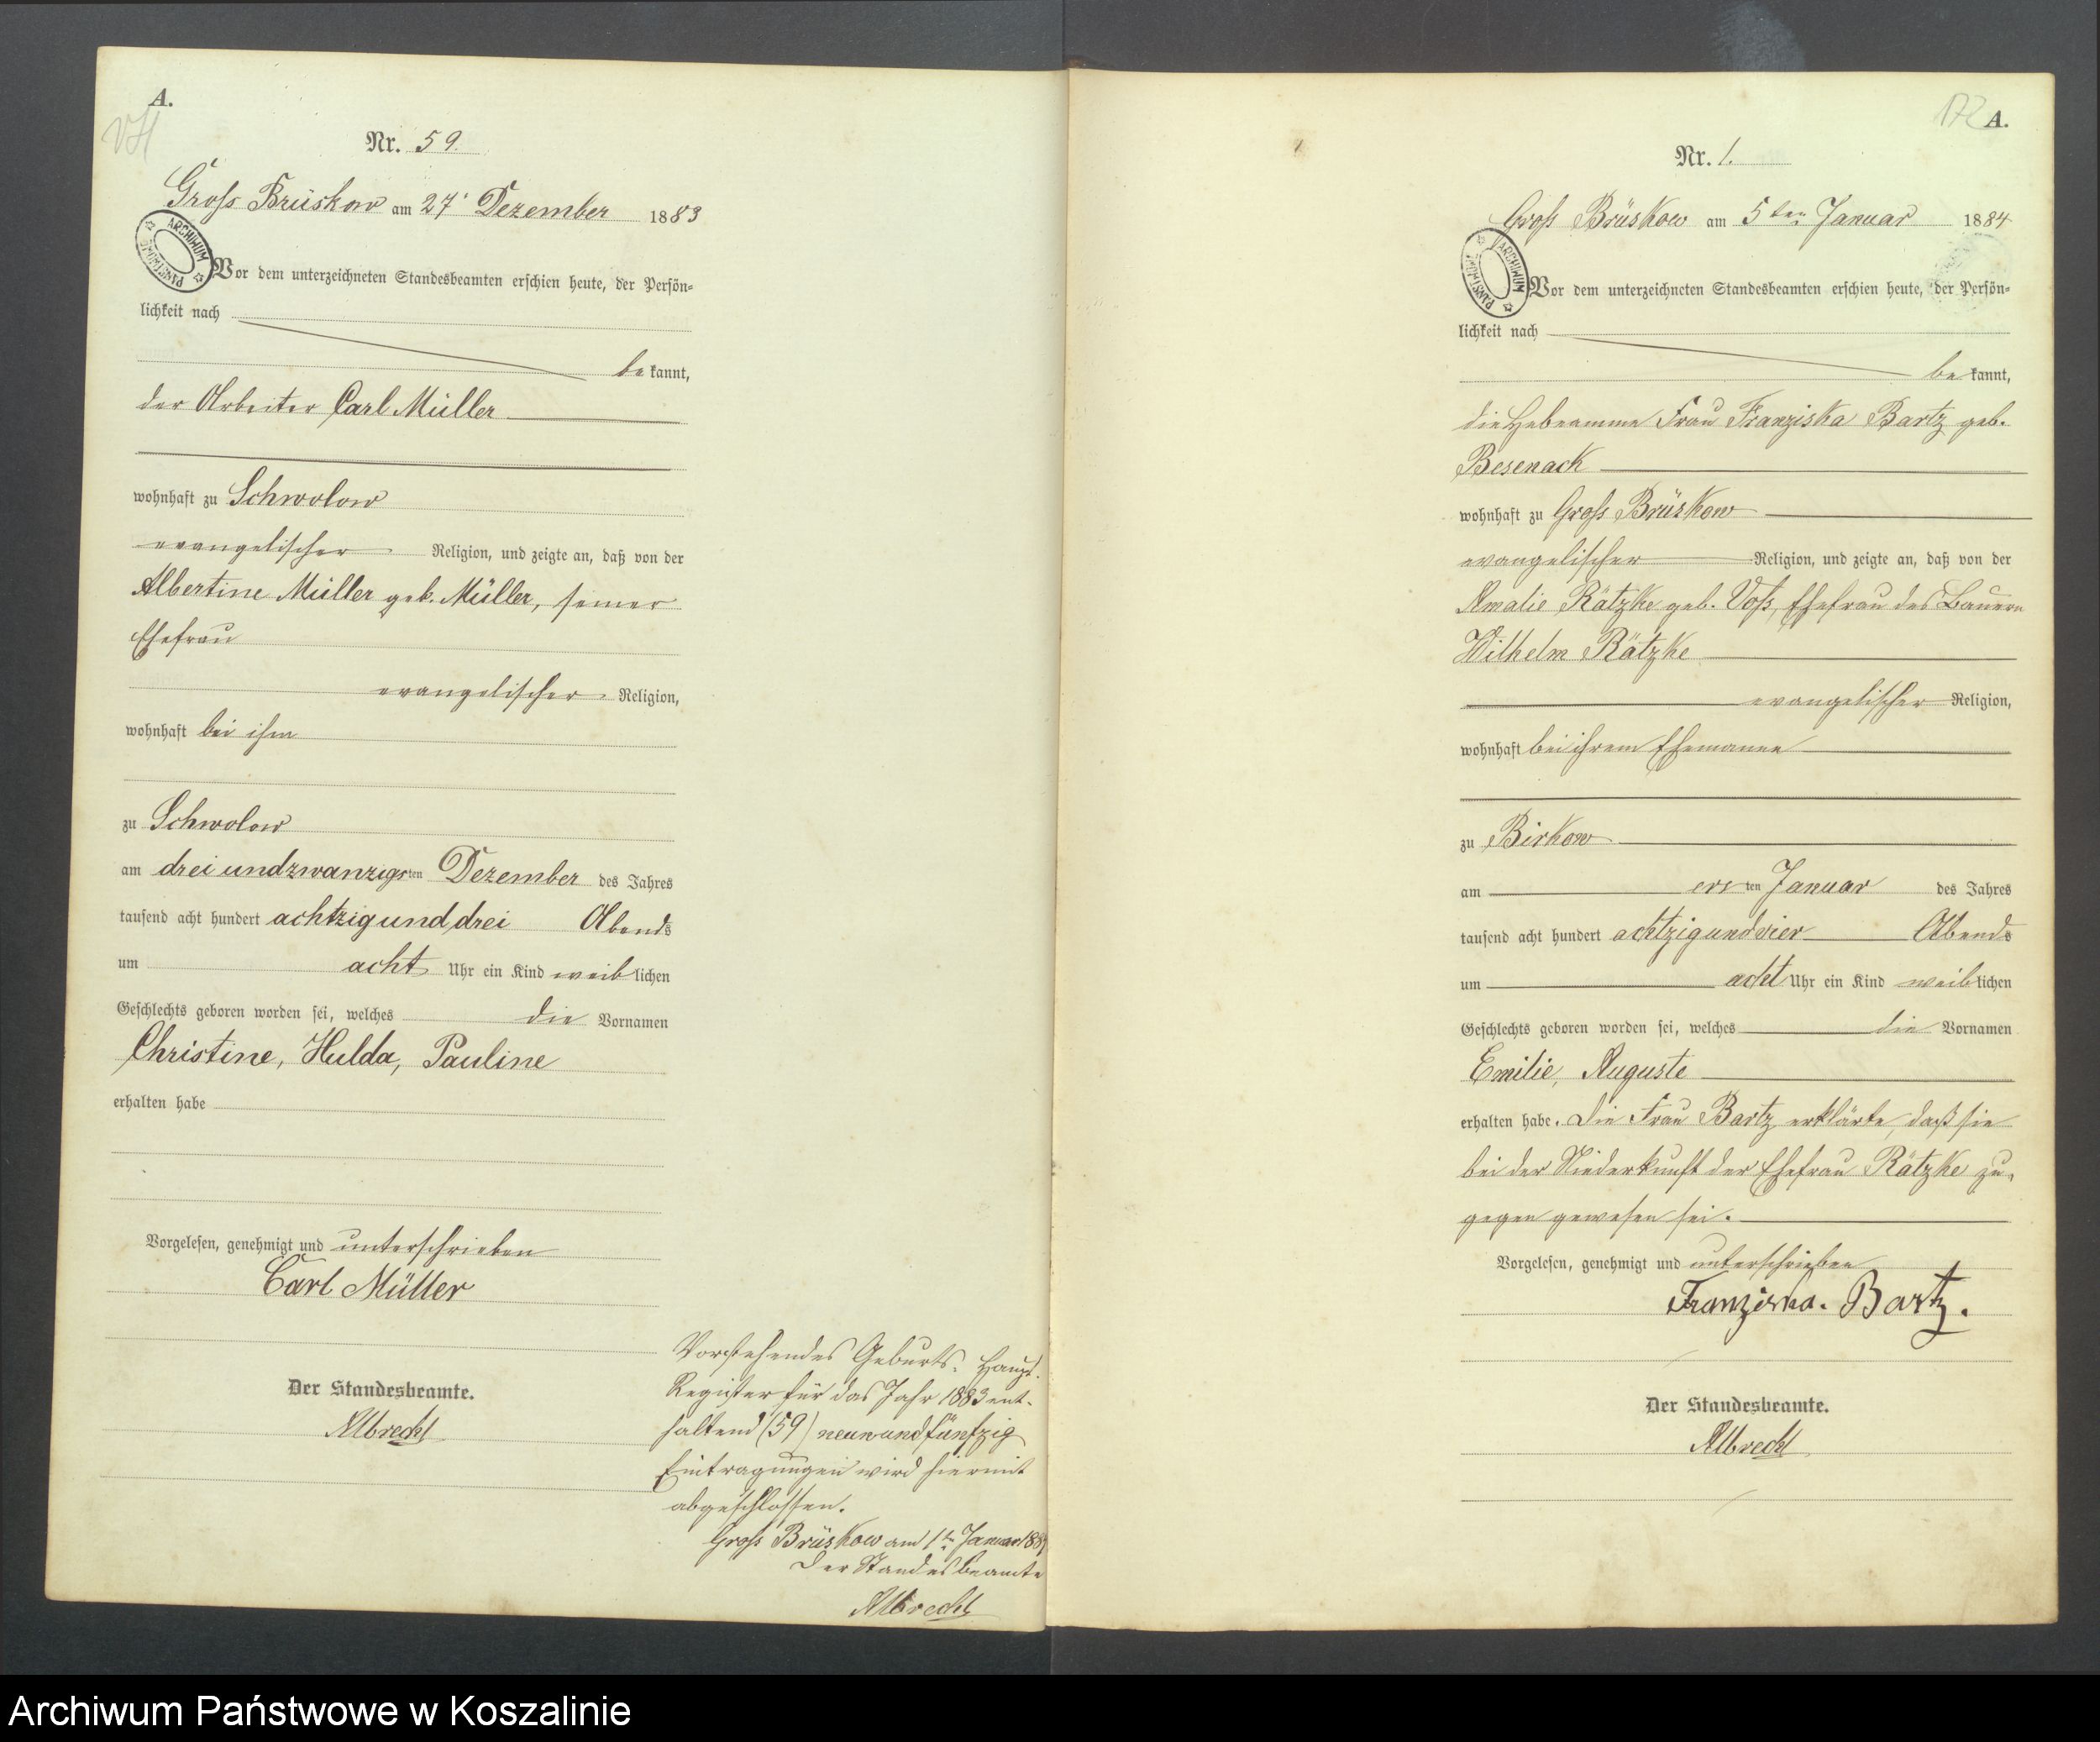 A.
VH
Nr. 59.
Gross Brüskow am 27. Dezember 1883
ARCHIWUM PAŃSTWOWE
Vor dem unterzeichneten Standesbeamten erschien heute, der Persön-
lichkeit nach
be kannt,
der Arbeiter Carl Müller
wohnhaft zu Schwolow
evangelischer Religion, und zeigte an, daß von der
Albertine Müller geb. Müller, seiner
Ehefrau
evangelischer Religion,
wohnhaft bei ihm
zu Schwolow
am drei undzwanzigsten Dezember des Jahres
tausend acht hundert achtzig und drei Abends
um acht Uhr ein Kind weiblichen
Geschlechts geboren worden sei, welches die Vornamen
Christine, Hulda, Pauline
erhalten habe
Vorgelesen, genehmigt und unterschrieben
Carl Müller
Der Standesbeamte.
Albrecht
Vorstehendes Geburts-Haupt-
Register für das Jahr 1883 ent-
haltend (59) neunundfünfzig
Eintragungen wird hiermit
abgeschlossen.
Gross Brüskow am 1ten Januar 1884
Der Standesbeamte
Albrecht
172 A.
Nr. 1.
Gross Brüskow am 5ten Januar 1884
ARCHIWUM PAŃSTWOWE
Vor dem unterzeichneten Standesbeamten erschien heute, der Persön-
lichkeit nach
be kannt,
die Hebeamme Frau Franziska Bartz geb.
Besenack
wohnhaft zu Gross Brüskow
evangelischer Religion, und zeigte an, daß von der
Amalie Rätzke geb. Voß, Ehefrau des Bauern
Wilhelm Rätzke
evangelischer Religion,
wohnhaft bei ihrem Ehemanne
zu Birkow
am ersten Januar des Jahres
tausend acht hundert achtzig und vier Abends
um acht Uhr ein Kind weiblichen
Geschlechts geboren worden sei, welches die Vornamen
Emilie, Auguste
erhalten habe. Die Frau Bartz erklärte, daß sie
bei der Niederkunft der Ehefrau Rätzke zu-
gegen gewesen sei.
Vorgelesen, genehmigt und unterschrieben
Franziska. Bartz.
Der Standesbeamte.
Albrecht
Archiwum Państwowe w Koszalinie